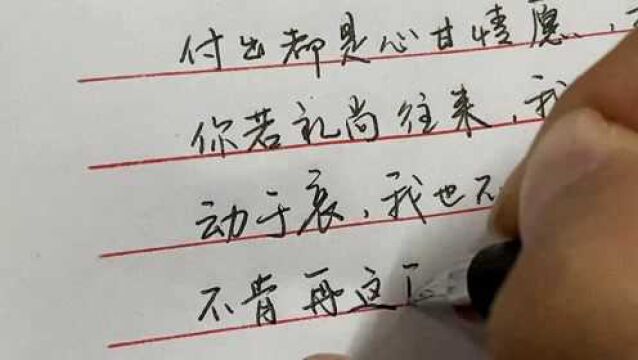 付出都是心甘情愿,
你若礼尚往来,我
动于衷,我也不
不肯再这